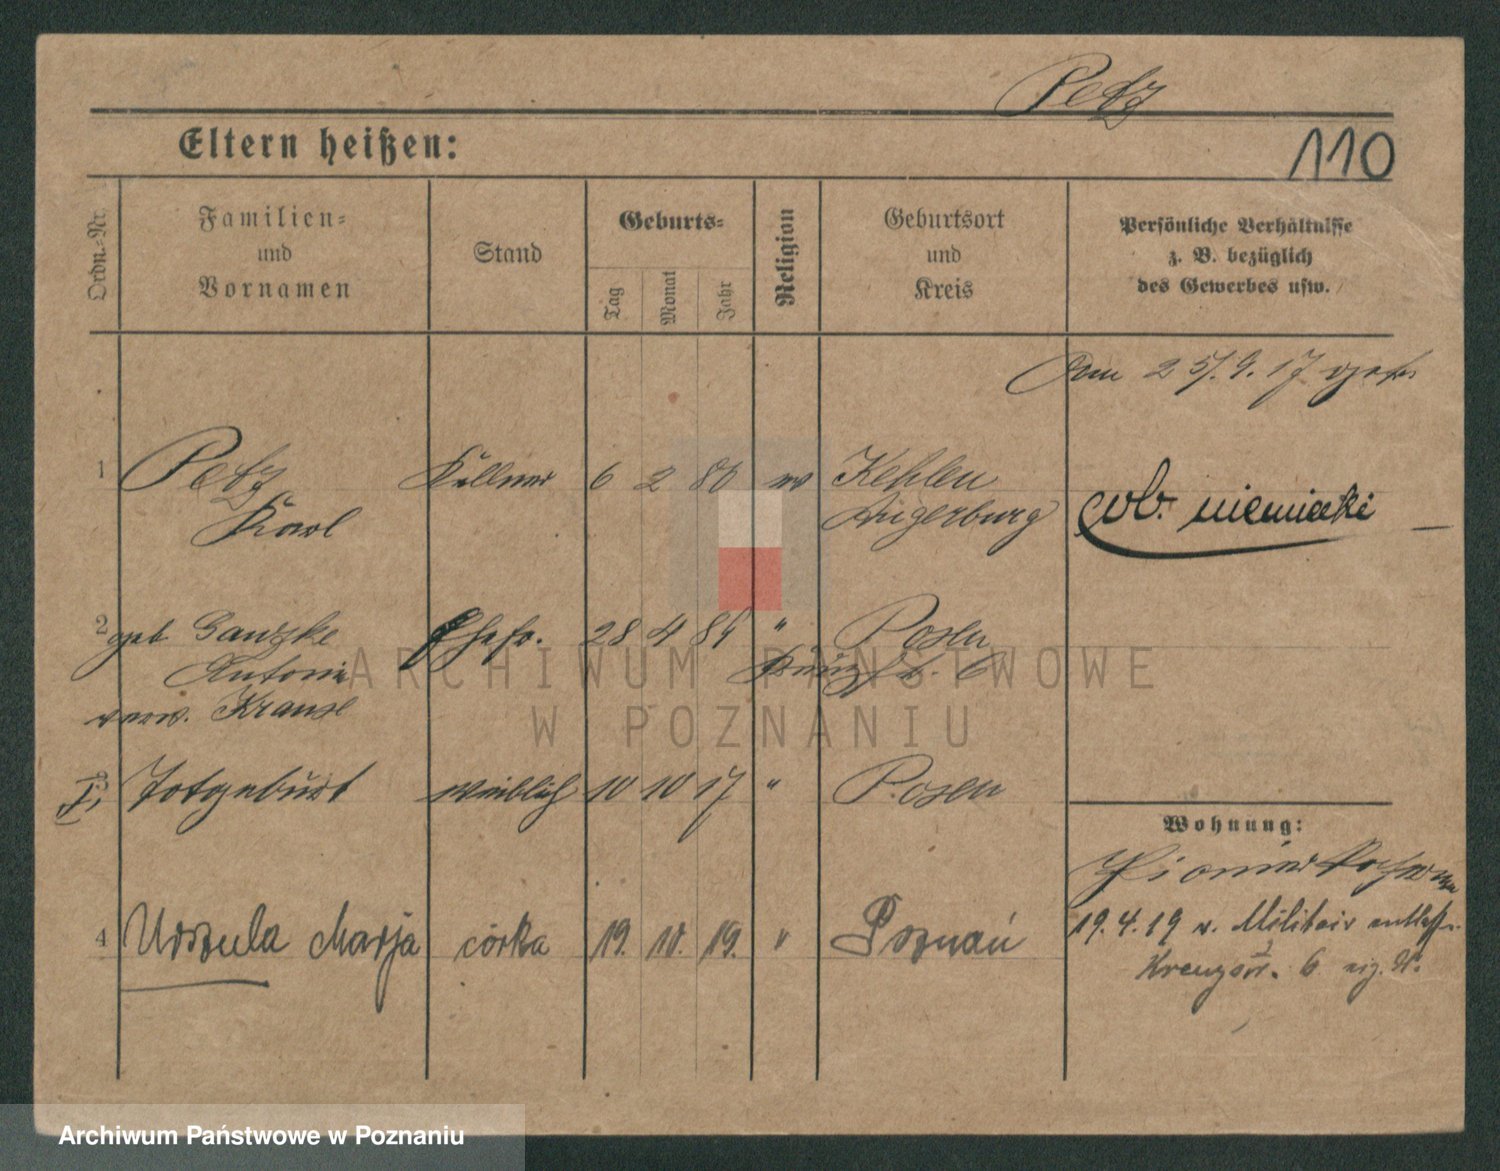 Petz
110
Eltern heißen:
Ordn.-Nr.
Familien-
und
Vornamen
Stand
Geburts-
Tag
Monat
Jahr
Religion
Geburtsort
und
Kreis
Persönliche Verhältnisse
z. B. bezüglich
des Gewerbes usw.
Am 25/.9.17
1 Petz Kellner 6 2 86 ev Kehlen
Karl Angerburg
ob. niemiecki
2 geb Gantzke Ehefr. 28 4 84 " Posen
Antonie
verw. Krause
Totgeburt weiblich 10 10 17 " Posen
4 Urszula Marja córka 19. 10. 19. " Poznań
Wohnung:
19.4.19 v. Militair entlass.
Kreuzstr. 6
ARCHIWUM PAŃSTWOWE
W POZNANIU
Archiwum Państwowe w Poznaniu